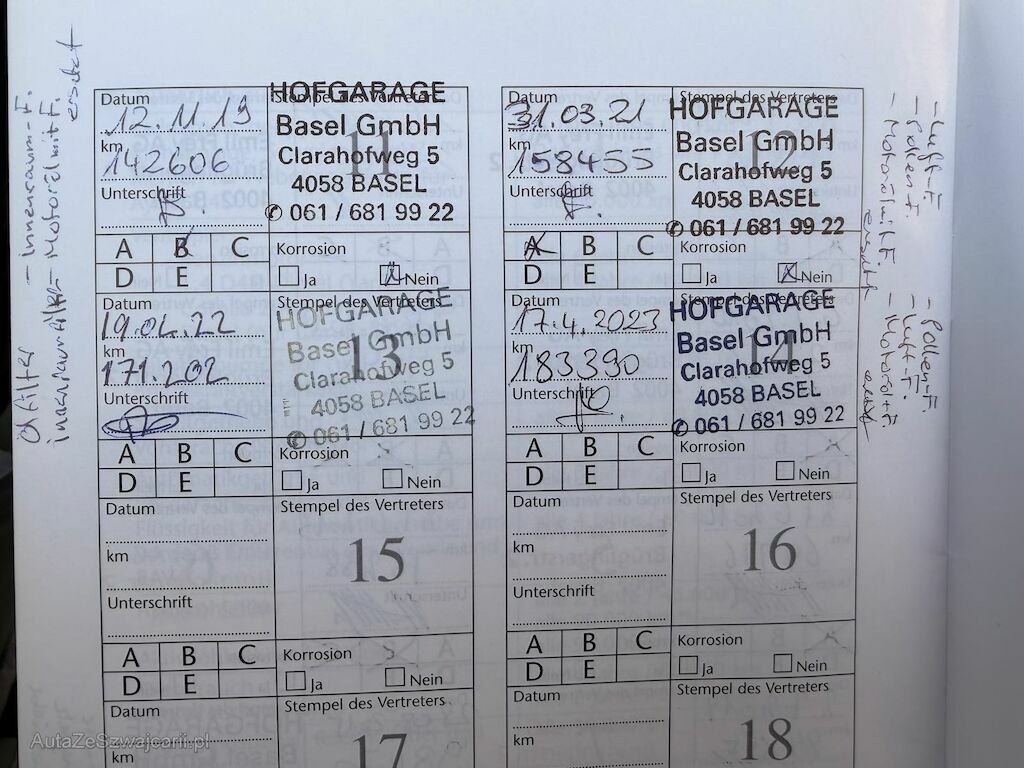 Datum
12.11.19
km
142606
Unterschrift
Stempel des Vertreters
11
HOFGARAGE
Basel GmbH
Clarahofweg 5
4058 BASEL
✆ 061 / 681 99 22
A B C
D E
Korrosion
Ja Nein
Datum
31.03.21
km
158455
Unterschrift
Stempel des Vertreters
12
HOFGARAGE
Basel GmbH
Clarahofweg 5
4058 BASEL
✆ 061 / 681 99 22
A B C
D E
Korrosion
Ja Nein
Datum
19.04.22
km
171.202
Unterschrift
Stempel des Vertreters
13
HOFGARAGE
Basel GmbH
Clarahofweg 5
4058 BASEL
✆ 061 / 681 99 22
A B C
D E
Korrosion
Ja Nein
Datum
17.4.2023
km
183390
Unterschrift
Stempel des Vertreters
14
HOFGARAGE
Basel GmbH
Clarahofweg 5
4058 BASEL
✆ 061 / 681 99 22
A B C
D E
Korrosion
Ja Nein
Datum
km
Unterschrift
Stempel des Vertreters
15
A B C
D E
Korrosion
Ja Nein
Datum
km
Unterschrift
Stempel des Vertreters
16
A B C
D E
Korrosion
Ja Nein
Datum
km
Stempel des Vertreters
17
Datum
km
Stempel des Vertreters
18
- innenraum-F.
ersetzt
- Luft-F.
- Pollen-F.
ersetzt
- Pollen-F.
- Luft-F.
AutaZeSzwajcarii.pl